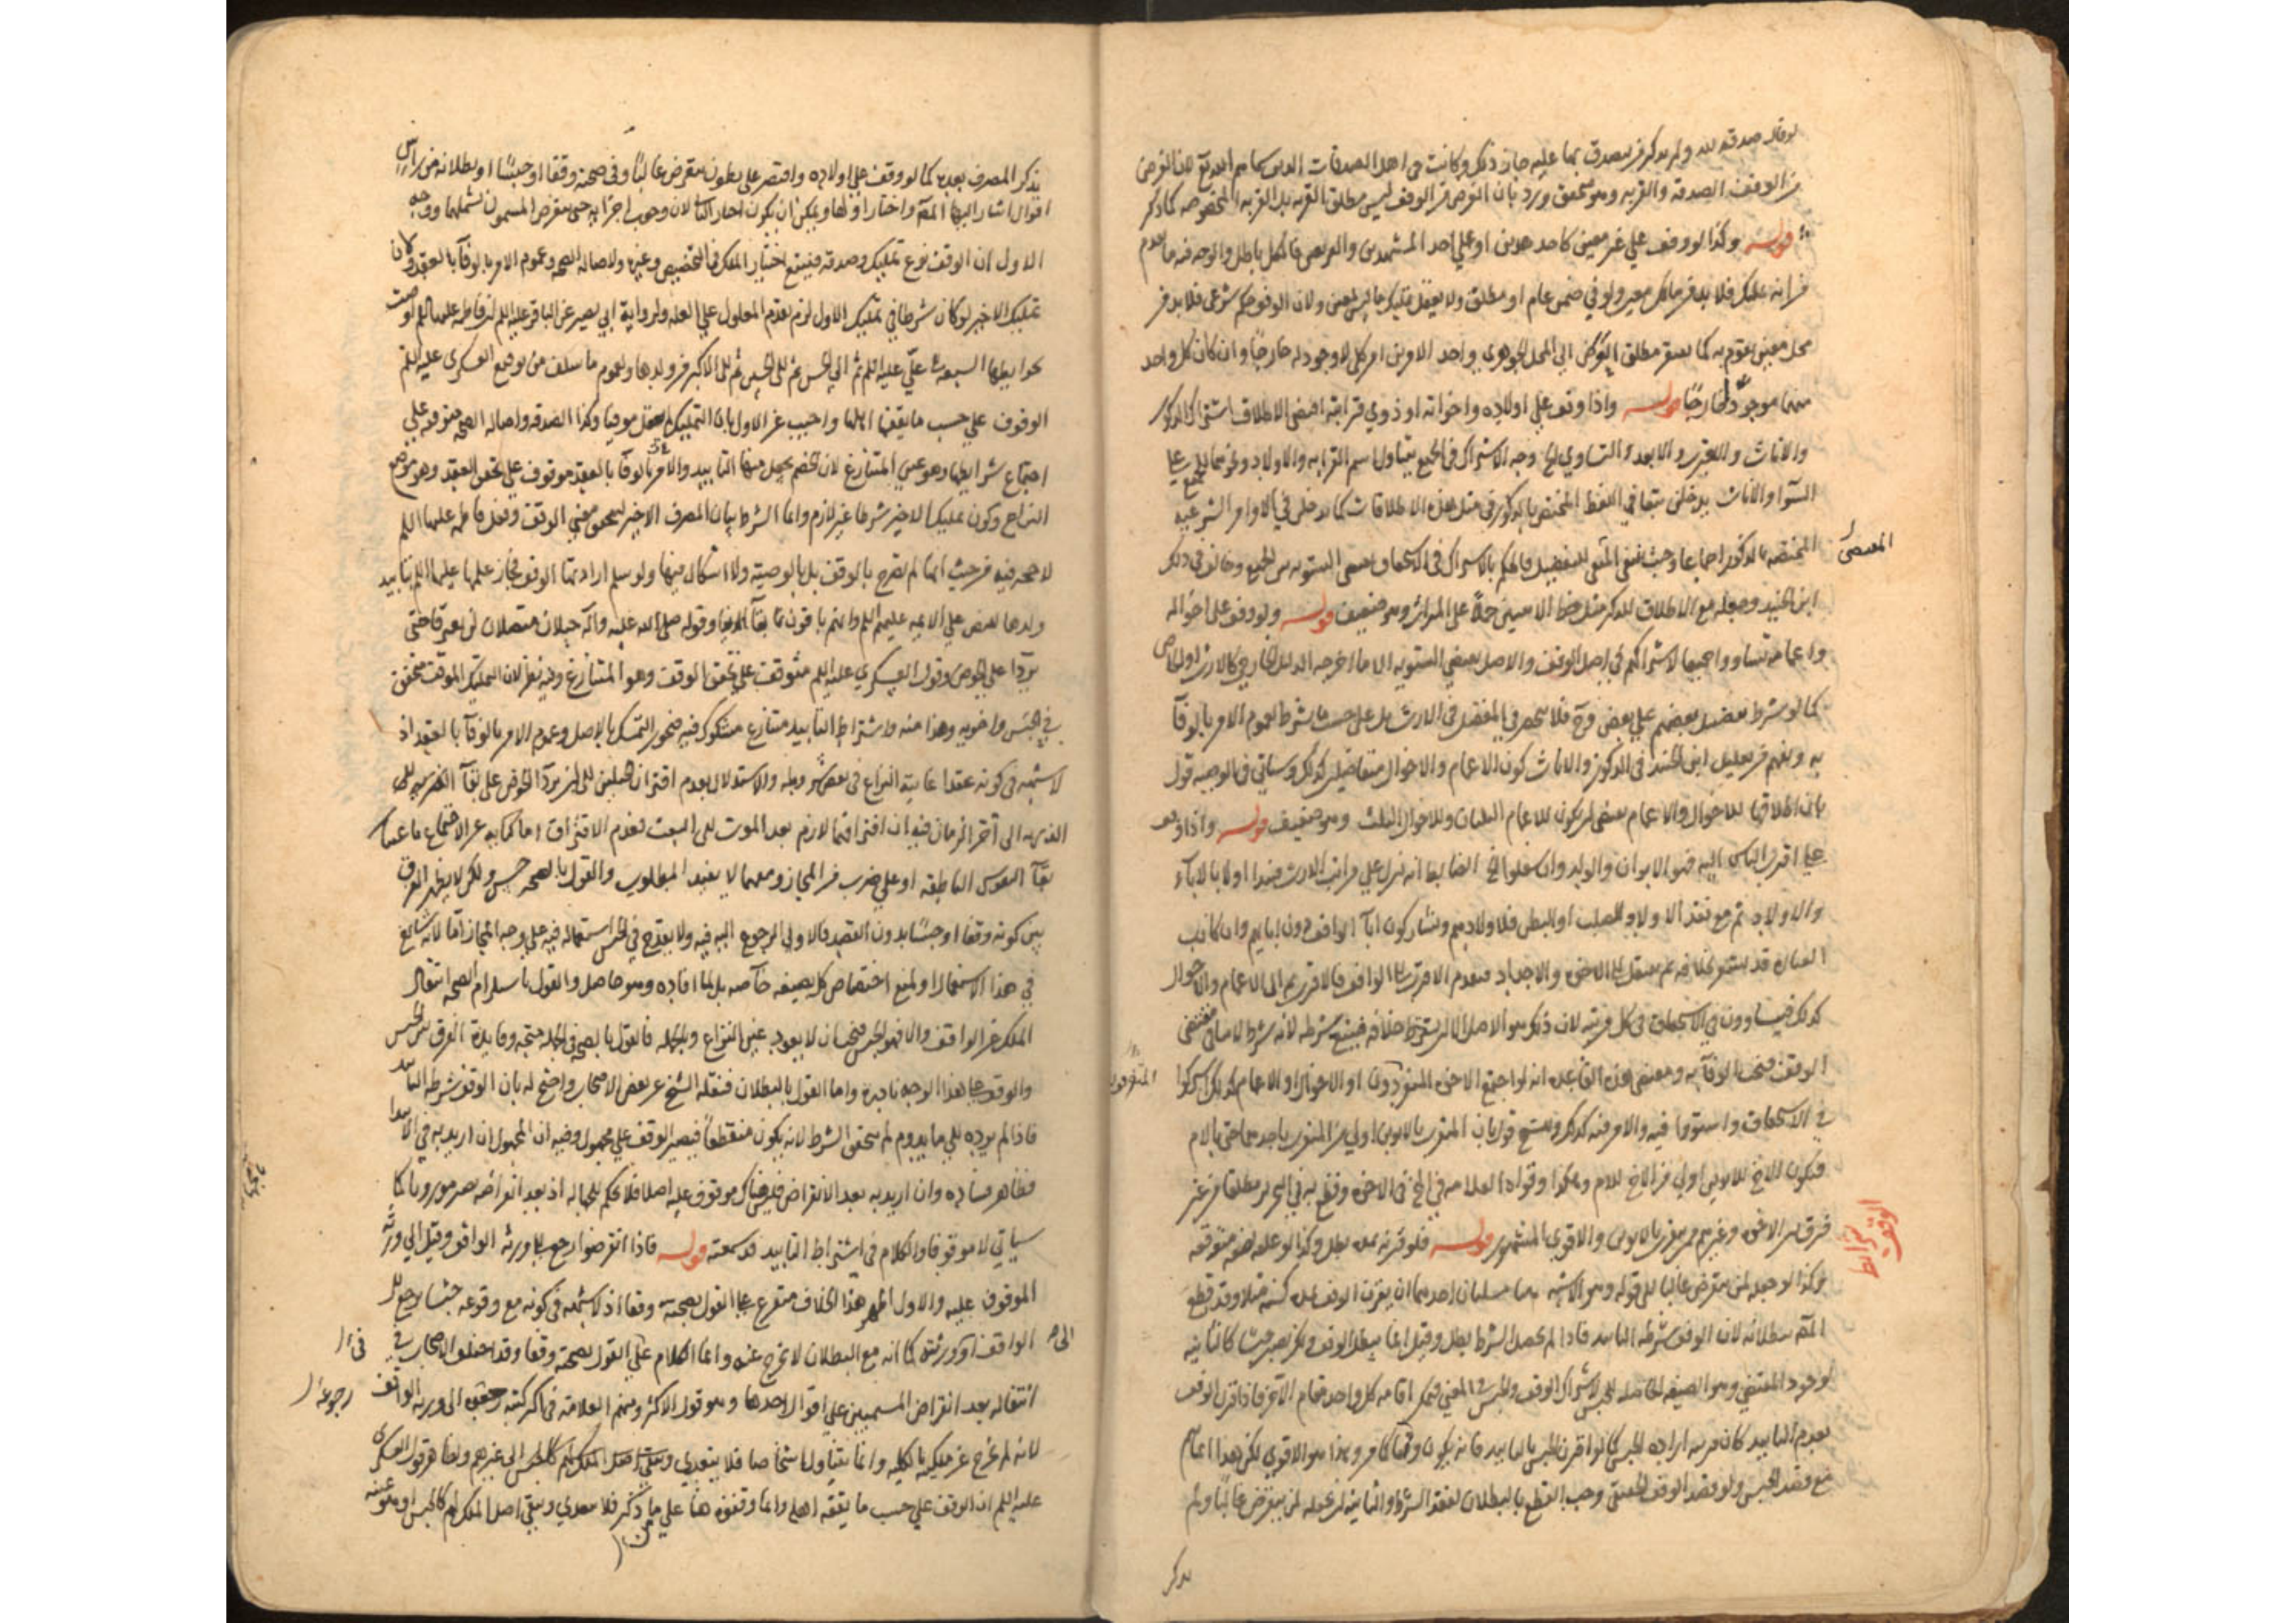 لو قال صدقة لله ولم يذكر من يتصدق بها عليه جاز ذلك وكانت في اهل الصدقات الذين سماهم الله تع لان الغرض
من الوقف الصدقة والقربة وهو متحقق ورد بان الغرض من الوقف ليس مطلق القربة بل القربة المخصوصة كما ذكر
قوله وكذا لو وقف علي غير معين كاحد هذين او علي احد المشهدين والفريقين فالكل باطل والوجه فيه ما تقدم
من انه تمليك فلا بد من مالك معين ولو في ضمن عام او مطلق ولا يعقل تمليك ما ليس بمعين ولان الوقف حكم شرعي فلا بد من
محل معين يقوم به كما يفتقر مطلق العرض الي المحل الجوهري واحد الامرين امر كلي لا وجود له خارجا وان كان كل واحد
منهما موجودا خارجا قوله واذا وقف علي اولاده واخوانه او ذوي قرابته اقتضي الاطلاق اشتراك الذكور
والاناث والاقرب والابعد والتساوي الخ وجه الاشتراك في الجميع تناول اسم القرابة والاولاد وغيرهما للجميع علي
السوآ والاناث يدخلن تبعا في اللفظ المختص بالذكور في مثل هذه الاطلاقات كما يدخلن في الاوامر الشرعية
المختصه بالذكور اجماعا وحيث انتفي المقتضي للتفضيل فالحكم بالاشتراك في الاستحقاق يقتضي التسوية بين الجميع وخالف في ذلك
المقتضي
ابن الجنيد وجعله مع الاطلاق للذكر مثل حظ الانثيين حملا علي الميراث وهو ضعيف قوله ولو وقف علي اخواله
واعمامه تساووا جميعا لاشتراكهم في اصل الوقف والاصل يقتضي التسوية الا ما اخرجه الدليل الخارجي كالارث او الخاص
كما لو شرط تفضيل بعضهم علي بعض وح فلا ينحصر في المفضل في الارث بل علي حسب ما يشرط لعموم الامر بالوفآ
به ويفهم من تعليل ابن الجنيد في الذكور والاناث كون الاعمام والاخوال متفاضلين كذلك وسياتي في الوصية قول
بان اطلاقها للاخوال والاعمام يقتضي ان يكون للاعمام الثلثان وللاخوال الثلث وهو ضعيف قوله واذا وقف
علي اقرب الناس اليه فهم الابوان والولد وان سفلوا الخ الضابط انه ينزل علي مراتب الارث فيبدا اولا بالآباء
والاولاد ثم مع فقد الاولاد للصلب او البطن فلاولادهم ويشاركون آبآ الواقف دون ابايهم وان كانت
العبارة قد يشعر بخلافه ثم ينتقل الي الاخوة والاجداد فيقدم الاقرب الي الواقف فالاقرب ثم الي الاعمام والاخوال
كذلك فيتساوون في الاستحقاق في كل مرتبة لان ذلك هو الاصل الا ان يشترط خلافه فيتبع شرطه لانه شرط لا ينافي مقتضي
الوقف فيجب الوفآ به ومقتضي هذه القاعدة انه لو اجتمع الاخوة المتفرقون او الاخوال او الاعمام كذلك اشتركوا
المتفرقون
في الاستحقاق واستووا فيه والامر فيه كذلك
فيكون الاخ للابوين اولي من الاخ للام وهكذا وقواه العلامة في الخ في الاخوة وقطع به في التحرير مطلقا من غير
شرائط الوقف
فرق بين الاخوة وغيرهم ممن يتقرب بالابوين والاقوي المشهور قوله فلو قرنه بمدة بطل وكذا لو علقه بصفة متوقعة
وكذا لو جعله لمن ينقرض غالبا الي قوله وهو الاشبه هنا مسئلتان احديهما ان يقرن الوقف بمدة كسنة مثلا وقد قطع
المصَ ببطلانه لان الوقف شرطه التابيد فاذا لم يحصل الشرط بطل وقيل انما يبطل الوقف ولكن يصير حبسا كالثانية
لوجود المقتضي وهو الصيغة الصالحة للحبس لاشتراك الوقف والحبس في المعني فيمكن اقامة كل واحد مقام الاخر فاذا قرن الوقف
بعدم التابيد كان قرينة ارادة الحبس كما لو اقرن الحبس بالتابيد فانه يكون وقفا كما مر وهذا هو الاقوي لكن هذا انما يتم
مع قصد الحبس ولو قصد الوقف الحقيقي وجب القطع بالبطلان لفقد الشرط والثانية ان يجعله لمن ينقرض غالبا ولم
يذكر
يذكر المصرف بعده كما لو وقف علي اولاده واقتصر علي بطون تنقرض غالبا وفي صحته وقفا او حبسا او بطلانه من راس
اقوال اشار اليها المصَ واختار اولها ويمكن ان يكون اختار الثاني لان وجوب اجرائه حتي ينقرض المسمون يشملهما ووجه
الاول ان الوقف نوع تمليك وصدقه فيتبع اختيار المالك في التخصيص وغيره ولاصالة الصحه وعموم الامر بالوفآ بالعقد ولان
تمليك الاخير لو كان شرطا في تمليك الاول لزم تقدم المعلول علي العلة ولرواية ابي بصير عن الباقر عليه السلم ان فاطمة عليها السلم اوصت
بحوايطها السبعه الي عليّ عليه السلم ثم الي الحسن ثم الي الحسين ثم الي الاكبر من ولدها ولعموم ما سلف من توقيع العسكري عليه السلم
الوقوف علي حسب ما يقفها اهلها واجيب عن الاول بان التمليك لم يعقل موقتا وكذا الصدقة واصالة الصحه متوقفه علي
اجتماع شرايطها وهو عين المتنازع لان الخصم يجعل منها التابيد والامر بالوفآ بالعقد موقوف علي تحقق العقد وهو موضع
النزاع وكون تمليك الاخير شرطا غير لازم وانما الشرط بيان المصرف الاخير ليتحقق معني الوقف وفعل فاطمه عليها السلم
لا حجه فيه من حيث انها لم تصرح بالوقف بل بالوصية ولا اشكال فيها ولو سلم ارادتها الوقف فجاز علمها عليها السلم بتابيد
ولدها للنص علي الايمه عليهم السلم وانهم باقون ما بقآ الدنيا وقوله صلي الله عليه واله حبلان متصلان لن يفترقا حتي
يردا علي الحوض وقول العسكري عليه السلم متوقف علي تحقق الوقف وهو المتنازع وفيه نظر لان التمليك الموقت متحقق
في الحبس واخويه وهذا منه واشتراط التابيد متنازع مشكوك فيه فيجوز التمسك بالاصل وعموم الامر بالوفآ بالعقد اذ
لا شبهه في كونه عقدا غايته النزاع في بعض شروطه والاستدلال بعدم افتراق الحبلين الي ان يردا الحوض علي بقآ
الذرية الي آخر الزمان فيه ان افتراقهما لازم بعد الموت الي البعث فعدم الافتراق اما كناية عن الاجتماع باعتبار
بقآ النفوس الناطقه او علي ضرب من المجاز ومعهما لا يفيد المطلوب والقول بالصحه حسن ولكن لا يظهر الفرق
بين كونه وقفا او حبسا بدون القصد فالاولي الرجوع اليه فيه ولا يقدح في الحبس استعماله فيه علي وجه المجاز اما لانه شايع
في هذا الاستعمال او لمنع اختصاص كل بصيغه خاصه بل بما افاده وهو حاصل والقول باستلزام الصحه انتقال
الملك عن الواقف والا فهو الحبس فيجب ان لا يعود عين النزاع وبالجمله فالقول بالصحه في الجمله متجه وفايدة الفرق بين الحبس
والوقف علي هذا الوجه نادرة واما القول بالبطلان فنقله الشيخ عن بعض الاصحاب واحتج له بان الوقف شرطه التابيد
فاذا لم يرده الي ما يدوم لم يتحقق الشرط لانه يكون منقطعا فيصير الوقف علي مجهول وفيه ان المجهول ان اريد به في الابتدا
فظاهر فساده وان اريد به بعد الانقراض فليس هناك موقوف عليه اصلا فلا يحكم بالجهالة اذ بعد انقراضه يصير موروثا كما
سياتي لا موقوفا والكلام في اشتراط التابيد قد سمعته قوله فاذا انقرضوا رجع الي ورثة الواقف وقيل الي ورثة
الموقوف عليه والاول اظهر هذا الخلاف متفرع علي القول بصحته وقفا اذ لا شبهه في كونه مع وقوعه حبسا يرجع الي
الواقف او ورثته كما انه مع البطلان لا يخرج عنه وانما الكلام علي القول بصحته وقفا وقد اختلف الاصحاب في
انتقاله بعد انقراض المسمين علي اقوال احدها وهو قول الاكثر ومنهم العلامة في اكثر كتبه رجوعه الي ورثة الواقف
رجوعه
لانه لم يخرج عن ملكه بالكليه وانما تناول اشخاصا فلا يتعدي الي غيرهم ولظاهر قول العسكري
عليه السلم ان الوقف علي حسب ما يقفه اهله وانما وقفوه هنا علي من ذكر فلا يتعدي ويبقي اصل الملك لهم كالحبس او هو عينه